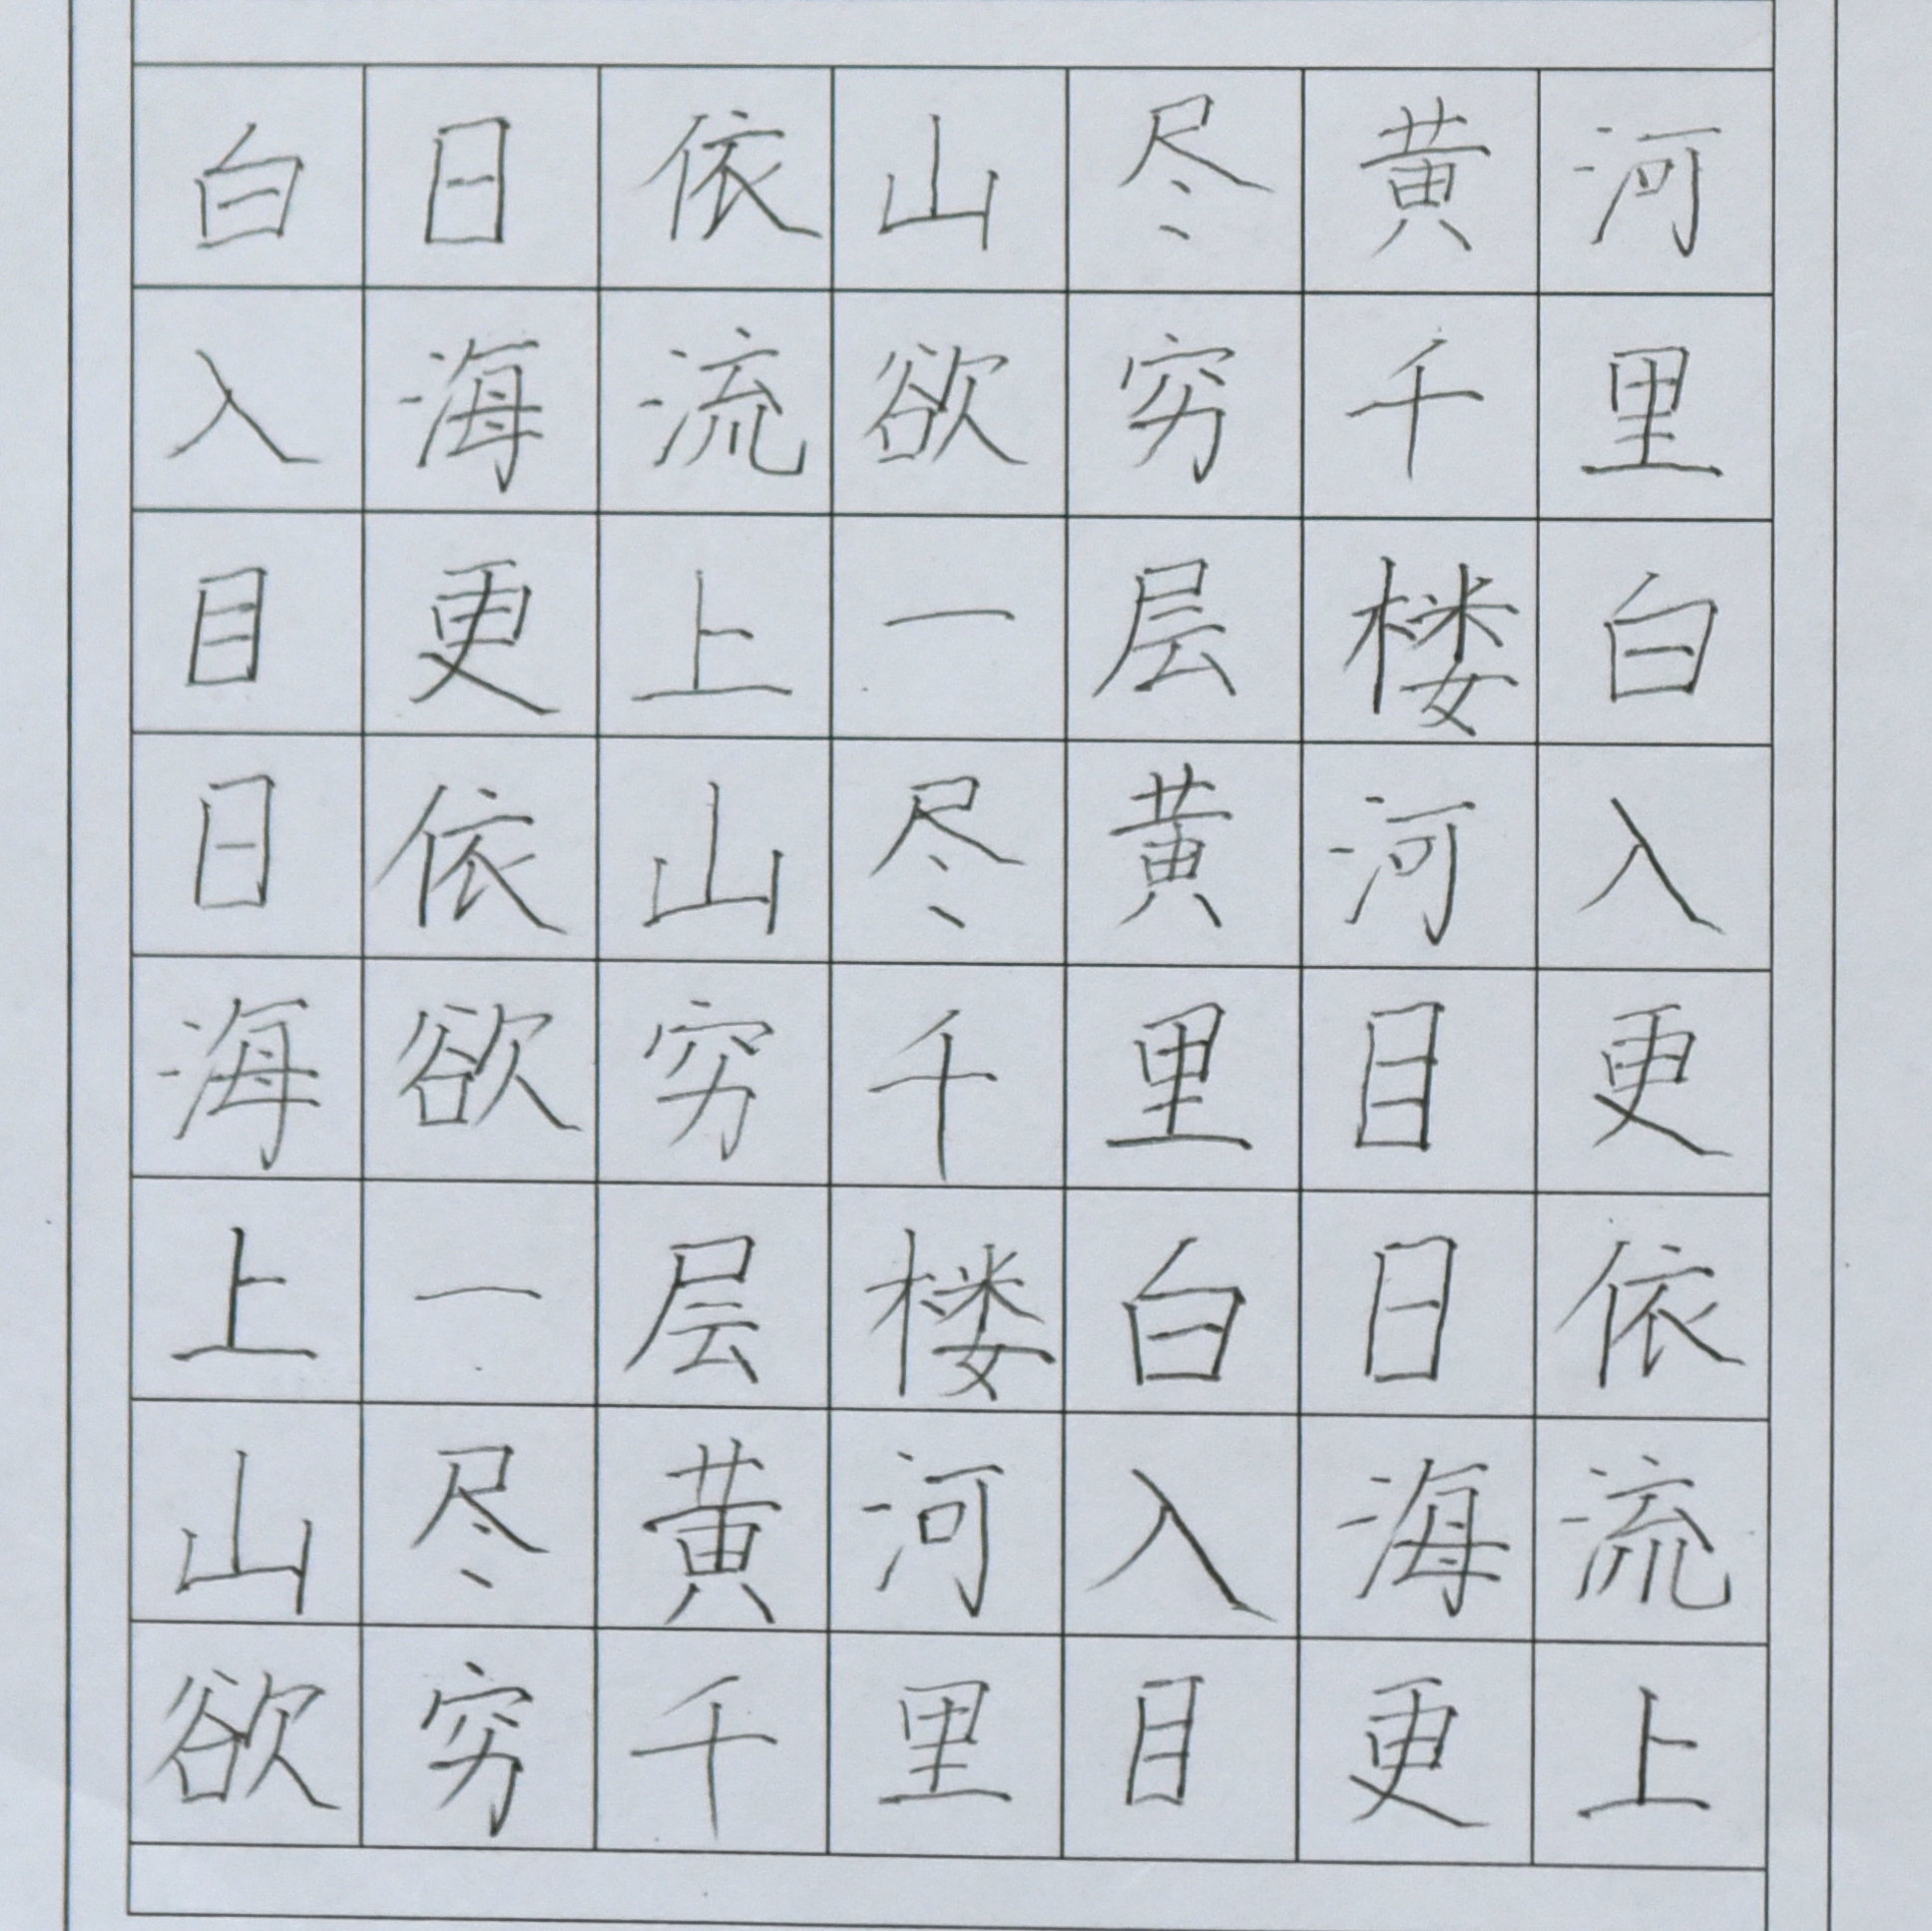 白日依山尽黄河
入海流欲穷千里
目更上一层楼白
日依山尽黄河入
海欲穷千里目更
上一层楼白日依
山尽黄河入海流
欲穷千里目更上